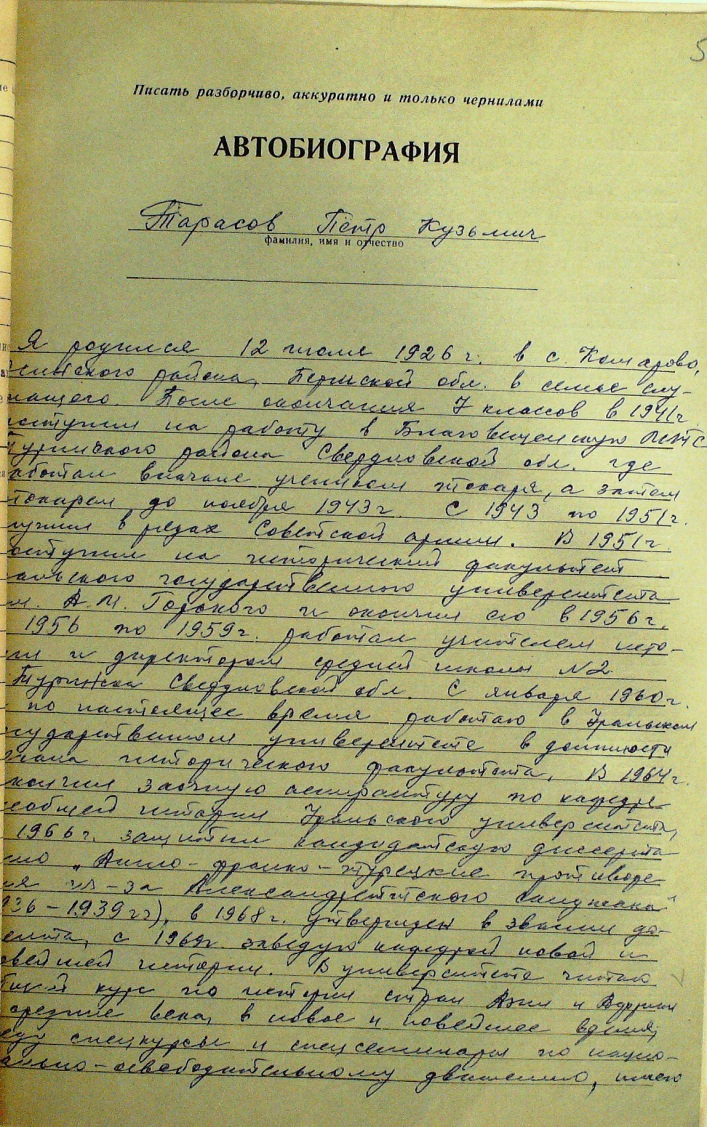 5
Писать разборчиво, аккуратно и только чернилами
АВТОБИОГРАФИЯ
Тарасов Пётр Кузьмич
фамилия, имя и отчество
Я родился 12 июля 1926 г. в с. Комарово,
района, Пермской обл. в семье слу-
жащего. После окончания 7 классов в 1941 г
поступил на работу в Благовещенскую МТС
Туринского района Свердловской обл. где
работал вначале учеником токаря, а затем
токарем до ноября 1943 г. С 1943 по 1951 г.
служил в рядах Советской армии. В 1951 г.
поступил на исторический факультет
Уральского государственного университета
им. А.М. Горького и окончил его в 1956 г.
1956 по 1959 г. работал учителем исто-
рии и директором средней школы №2
Туринска Свердловской обл. С января 1960 г.
по настоящее время работаю в Уральском
государственном университете в должности
декана исторического факультета. В 1964 г.
окончил заочную аспирантуру по кафедре
всеобщей истории Уральского университета,
1966 г. защитил кандидатскую диссерта
цию „Англо-франко-турецкие противоре
чия из-за Александреттского санджака"
(1936-1939 гг), в 1968 г. утвержден в звании до-
цента, с 1969 г. заведую кафедрой новой и
новейшей истории. В университете читаю
общий курс по истории стран Азии и Африки
средние века, в новое и новейшее время,
веду спецкурсы и спецсеминары по нацио-
нально-освободительному движению, имею